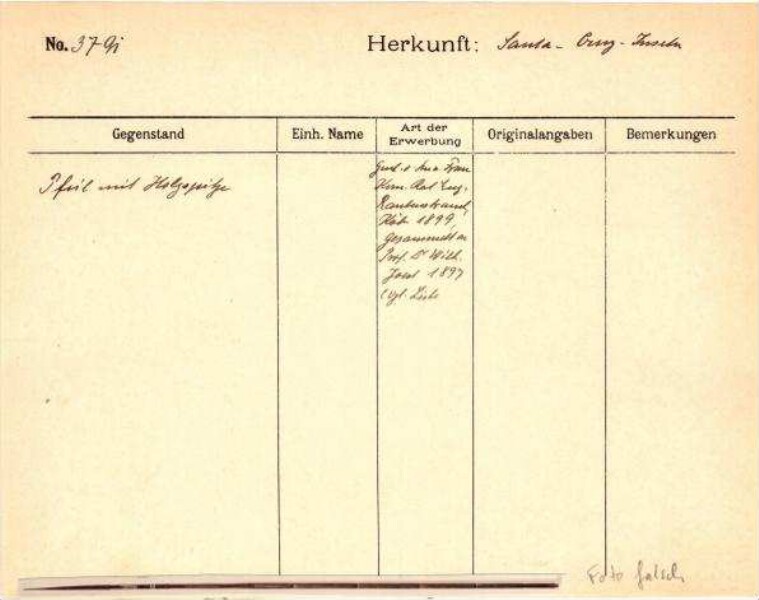 No. 37 gi Herkunft: Santa-Cruz-Inseln
Gegenstand Einh. Name Art der Erwerbung Originalangaben Bemerkungen
Pfeil mit Holzspitze
Frau
Kom. Rat Eug.
Rautenstrauch,
Köln 1899,
gesammelt von
Prof. Dr Wilh.
Joest 1897
(vgl. Liste
Foto falsch